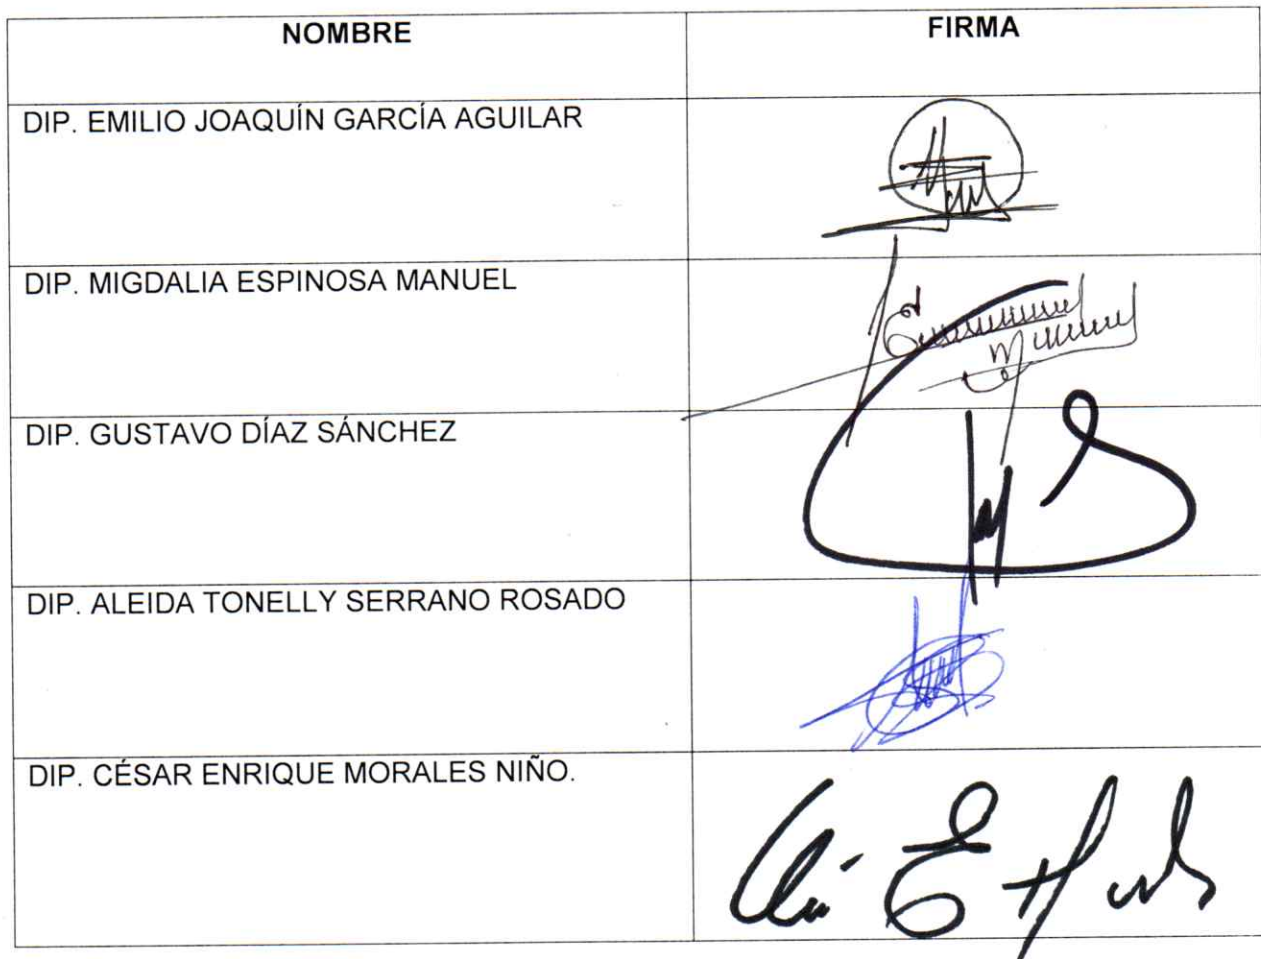 NOMBRE FIRMA
DIP. EMILIO JOAQUÍN GARCÍA AGUILAR
DIP. MIGDALIA ESPINOSA MANUEL
DIP. GUSTAVO DÍAZ SÁNCHEZ
DIP. ALEIDA TONELLY SERRANO ROSADO
DIP. CÉSAR ENRIQUE MORALES NIÑO.